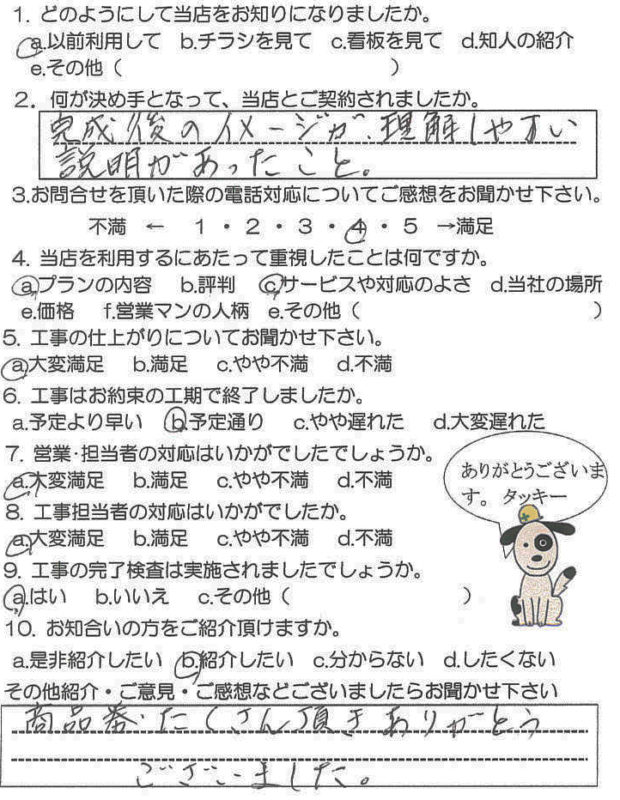 1. どのようにして当店をお知りになりましたか。
a.以前利用して b.チラシを見て c.看板を見て d.知人の紹介
e.その他（ ）
2. 何が決め手となって、当店とご契約されましたか。
完成後のイメージが、理解しやすい
説明があったこと。
3.お問合せを頂いた際の電話対応についてご感想をお聞かせ下さい。
不満 ← 1・2・3・4・5 →満足
4. 当店を利用するにあたって重視したことは何ですか。
a.プランの内容 b.評判 c.サービスや対応のよさ d.当社の場所
e.価格 f.営業マンの人柄 e.その他（ ）
5. 工事の仕上がりについてお聞かせ下さい。
a.大変満足 b.満足 c.やや不満 d.不満
6. 工事はお約束の工期で終了しましたか。
a.予定より早い b.予定通り c.やや遅れた d.大変遅れた
7. 営業・担当者の対応はいかがでしたでしょうか。
a.大変満足 b.満足 c.やや不満 d.不満
ありがとうございま
す。 タッキー
8. 工事担当者の対応はいかがでしたか。
a.大変満足 b.満足 c.やや不満 d.不満
9. 工事の完了検査は実施されましたでしょうか。
a.はい b.いいえ c.その他（ ）
10. お知合いの方をご紹介頂けますか。
a.是非紹介したい b.紹介したい c.分からない d.したくない
その他紹介・ご意見・ご感想などございましたらお聞かせ下さい
商品券、たくさん頂きありがとう
ございました。